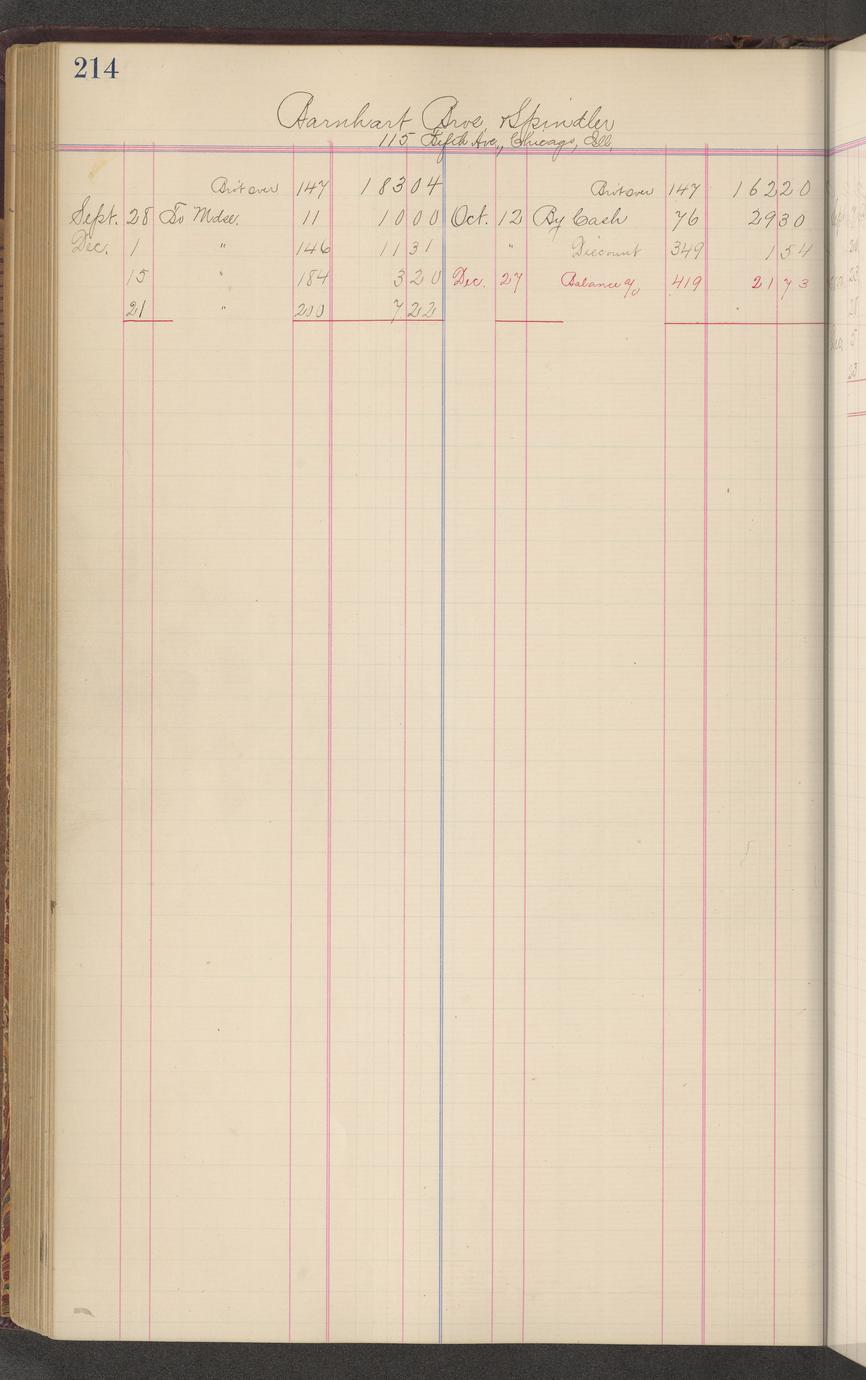 214
Barnhart Bros. & Spindler
115 Fifth Ave., Chicago, Ill.
Bro't over 147 183 04 Bro't over 147 162 20
Sept. 28 To Mdse. 11 10 00 Oct. 12 By Cash 76 29 30
Dec. 1 " 146 11 31 " Discount 349 1 54
15 " 184 3 20 Dec. 27 Balance c/o 419 21 73
21 " 200 7 22